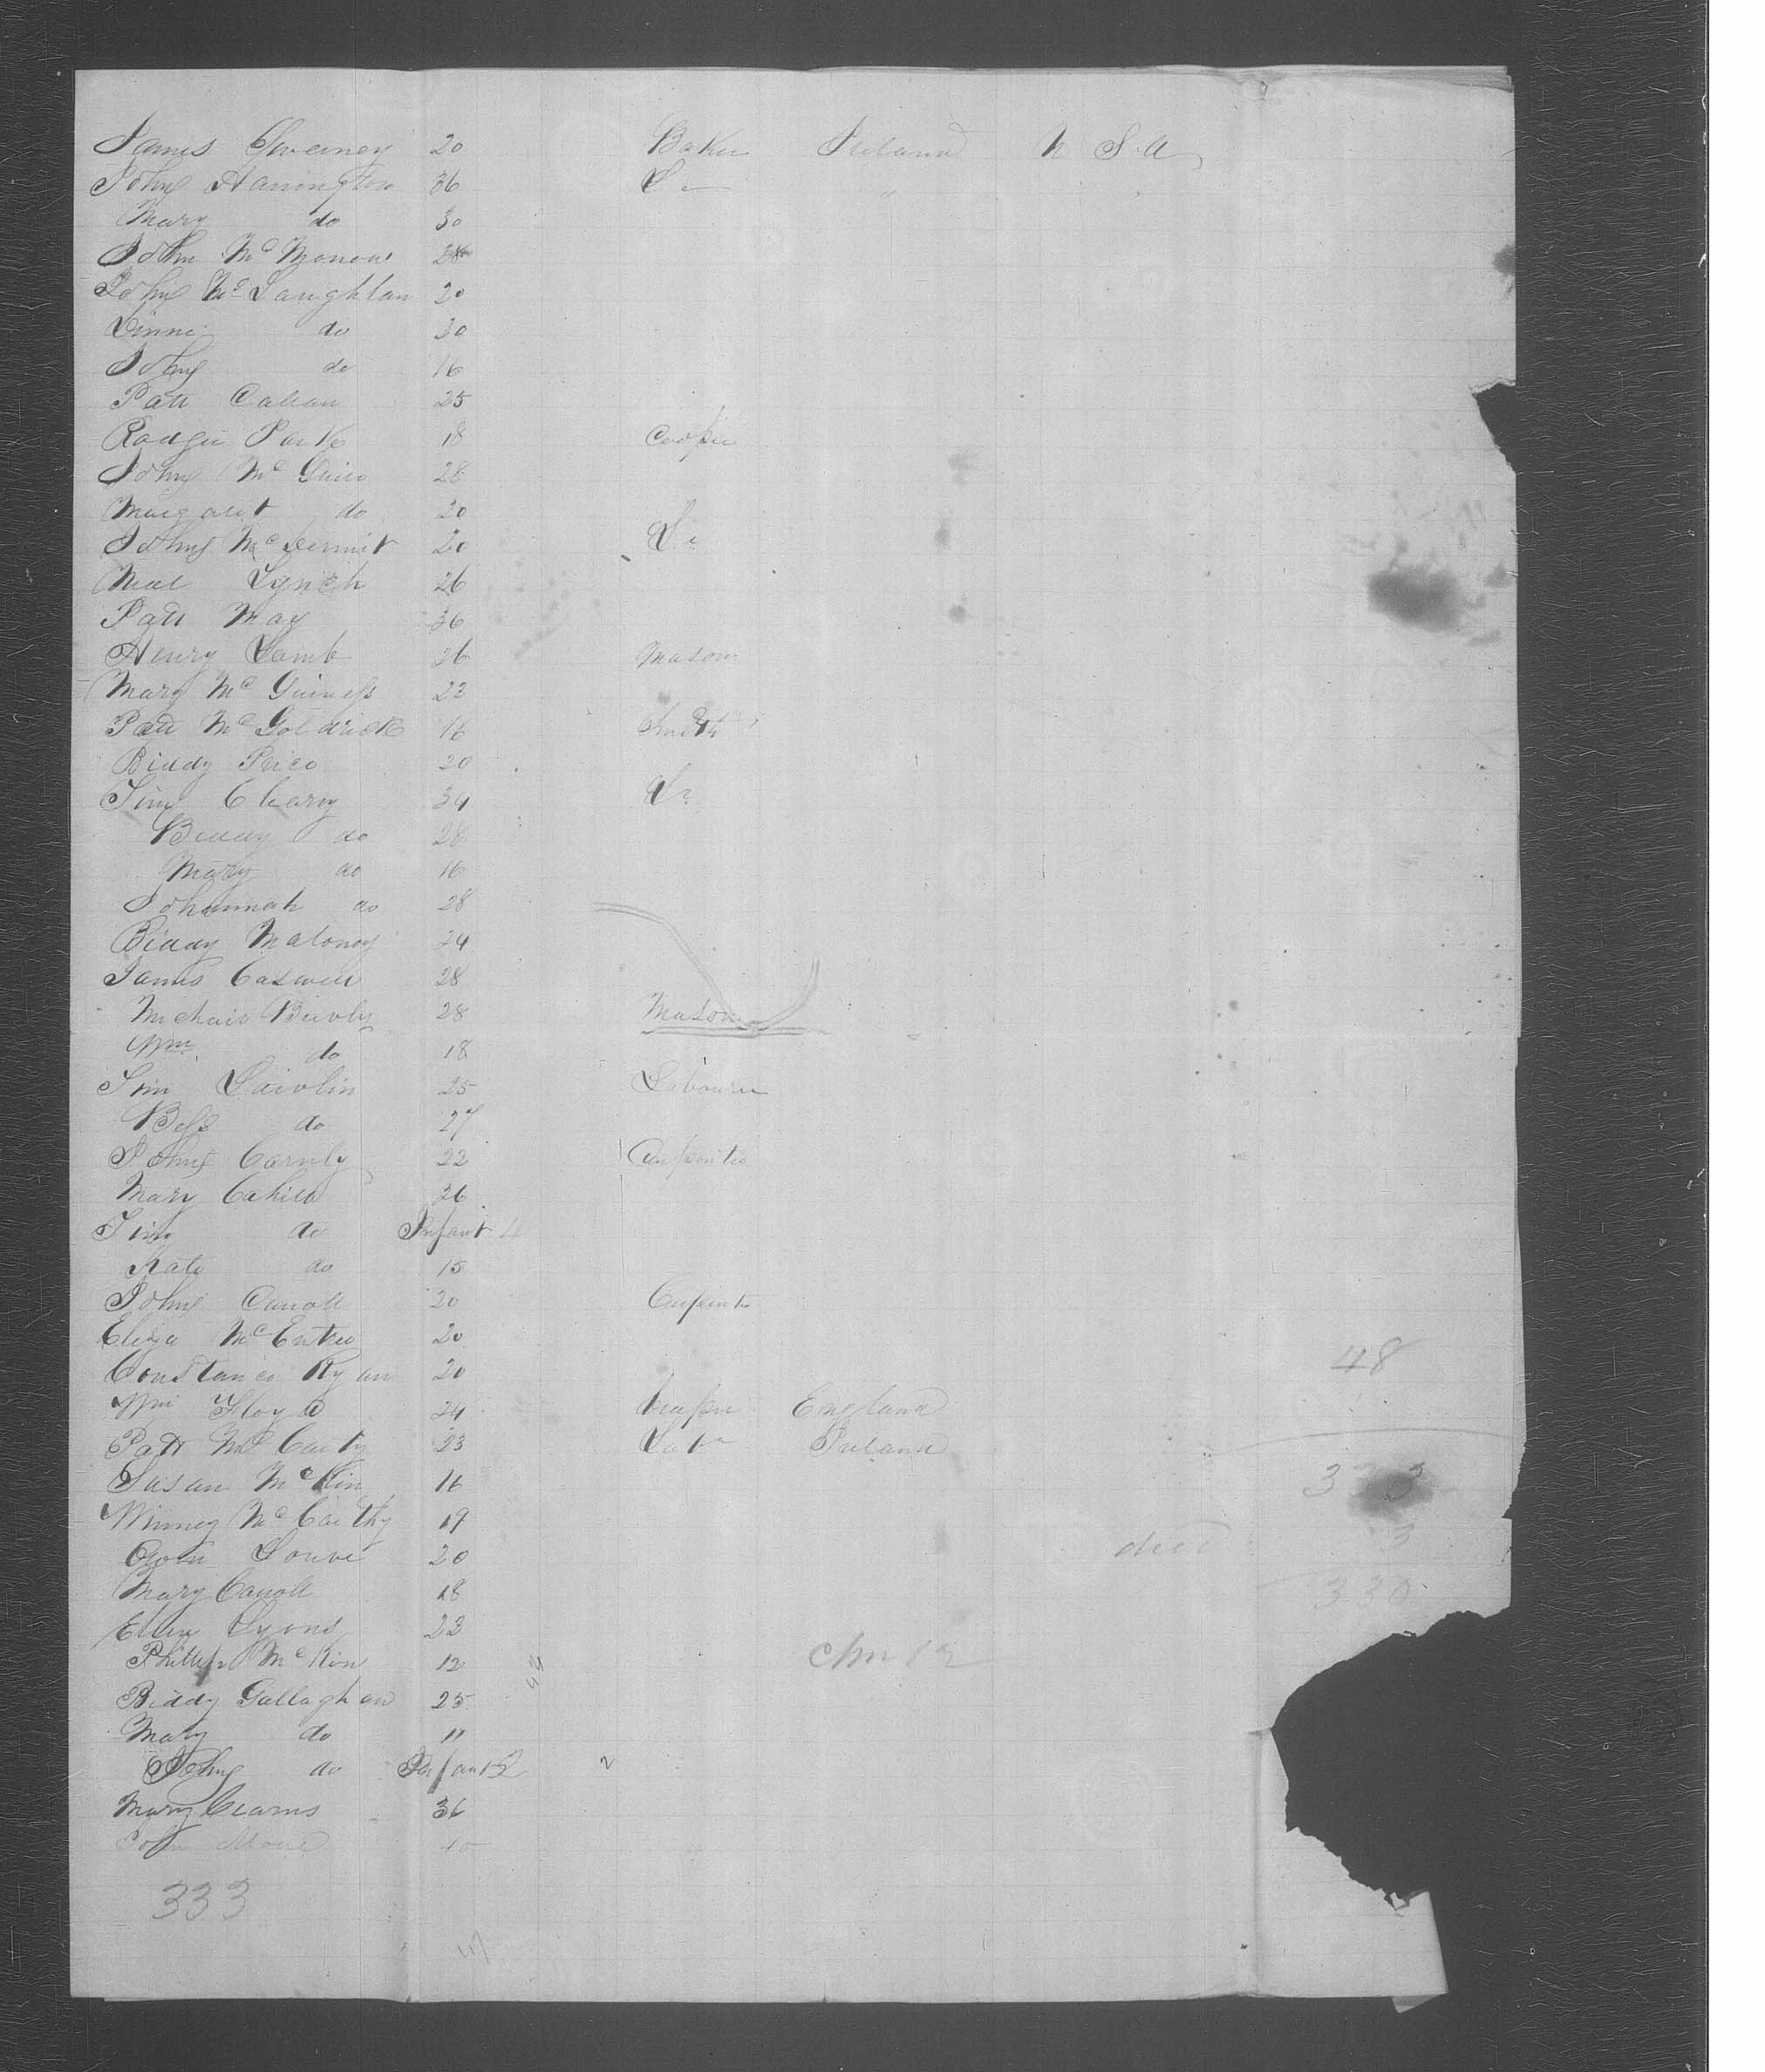 James Sweeney 20 Baker Ireland U S. A
John Harrington 36 Do "
Mary do 30
John McMonow 28
John McLaughlan 20
Dinni do 30
John do 16
Patt Calian 25
Rodger Park 18 Cooper
John McGuire 28
Margaret do 20
John McDermit 20 Do
Neal Lynch 26
Patt May 36
Henry Lamb 26 Mason
Mary McGuiness 22
Patt McGoldrick 16 Smith
Biddy Price 20
Tim Cleary 34 Do
Biddy do 28
Mary do 16
Johannah do 28
Biddy Maloney 24
James Caswell 28
Michael 28 Mason
Wm do 18
Tim 25 Labourer
Bess do 27
John 22 Carpenter
Mary Cahill 36
Tim do Infant
Kate do 15
John Carroll 20 Carpenter
Eliza McEntee 20
48
Constance Ryan 20
Wm Floyd 24 England
Patt McCarty 23 Labr Ireland
Susan McKin 16 333
Winney McCarthy 19
died 3
20
Mary Carroll 18 330
Ellen Lyons 23
Phillip McKin 12
Biddy Gallaghan 25
Mary do 11
John do Infant 2
Mary Cearns 36
John 40
333